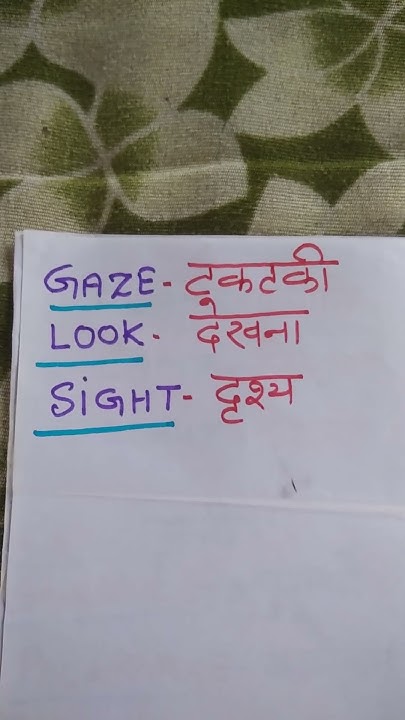 GAZE - टकटकी
LOOK - देखना
SiGHT - दृश्य